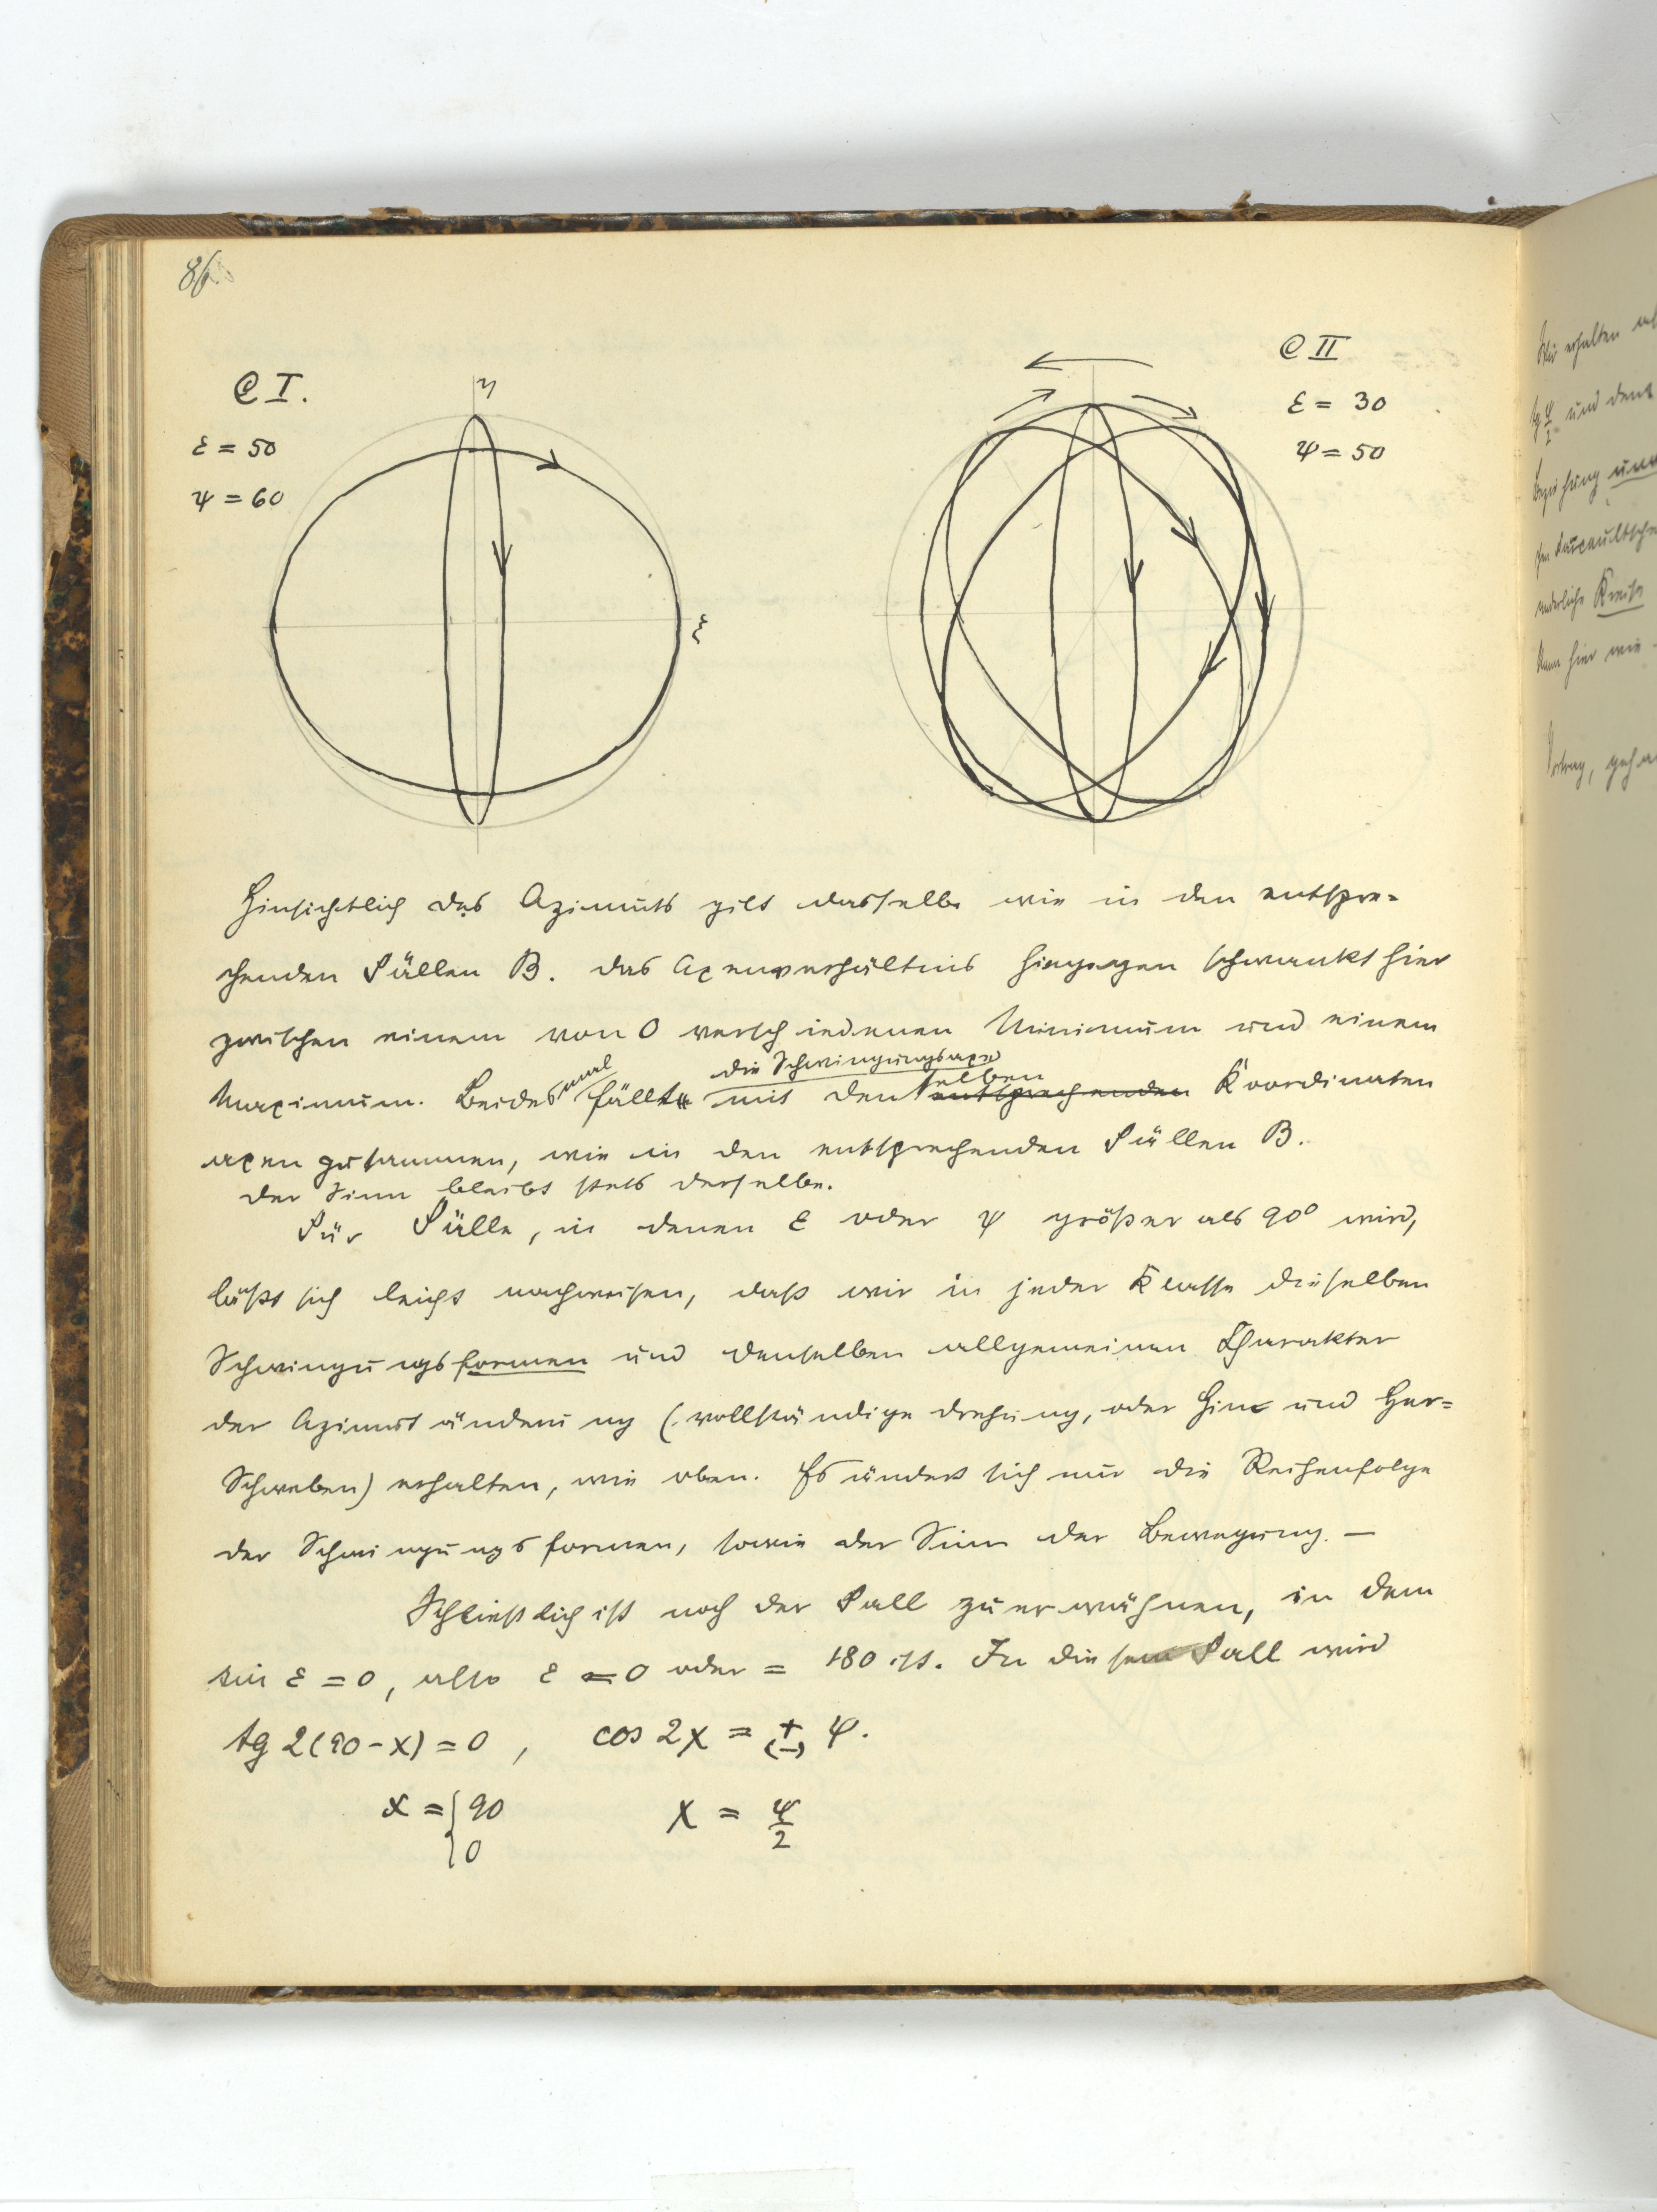 86
C I.
ε = 50
ψ = 60
η
ξ
C II
ε = 30
ψ = 50
Hinsichtlich des Azimuts gilt dasselbe wie in den entspre-
chenden Fällen B. Das Axenverhältnis hingegen schwankt hier
zwischen einem von 0 verschiedenen Minimum und einem
die Schwingungsaxe
Maximum. Beidesmal fällt mit denselben entsprechenden Koordinaten
axen zusammen, wie in den entsprechenden Fällen B.
Der Sinn bleibt stets derselbe.
Für Fälle, in denen ε oder ψ größer als 90° wird,
läßt sich leicht nachweisen, daß wir in jeder Klasse dieselben
Schwingungsformen und denselben allgemeinen Charakter
der Azimutänderung (vollständige Drehung, oder Hin und Her-
Schweben) erhalten, wie oben. Es ändert sich nur die Reihenfolge
der Schwingungsformen, sowie der Sinn der Bewegung. —
Schließlich ist noch der Fall zu erwähnen, in dem
sin ε = 0, also ε = 0 oder = 180 ist. In diesem Fall wird
tg 2(90-χ) = 0, cos 2χ = +(-) ψ.
x = { 90 χ = ψ/2
0
Wir erhalten
tg ψ/2 und dem
Beziehung
Foucaultsche
Kreise
kann hier wie
Vortrag,